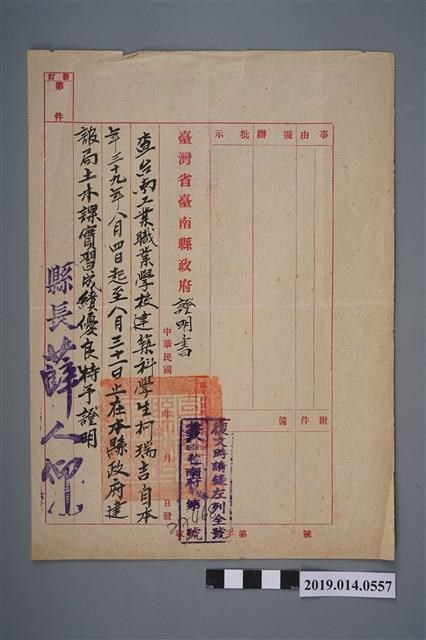 事由
擬辦
批示
附件
備
號
字第
裝訂
第
件
臺灣省臺南縣政府證明書
中華民國
年
月
日發
復文時請錄左列全號
號
查台南工業職業學校建築科學生柯瑞吉自本
年三十九年八月四日起至八月三十一日止在本縣政府建
設局土木課實習成績優良特予證明
縣長薛人仰
2019.014.0557